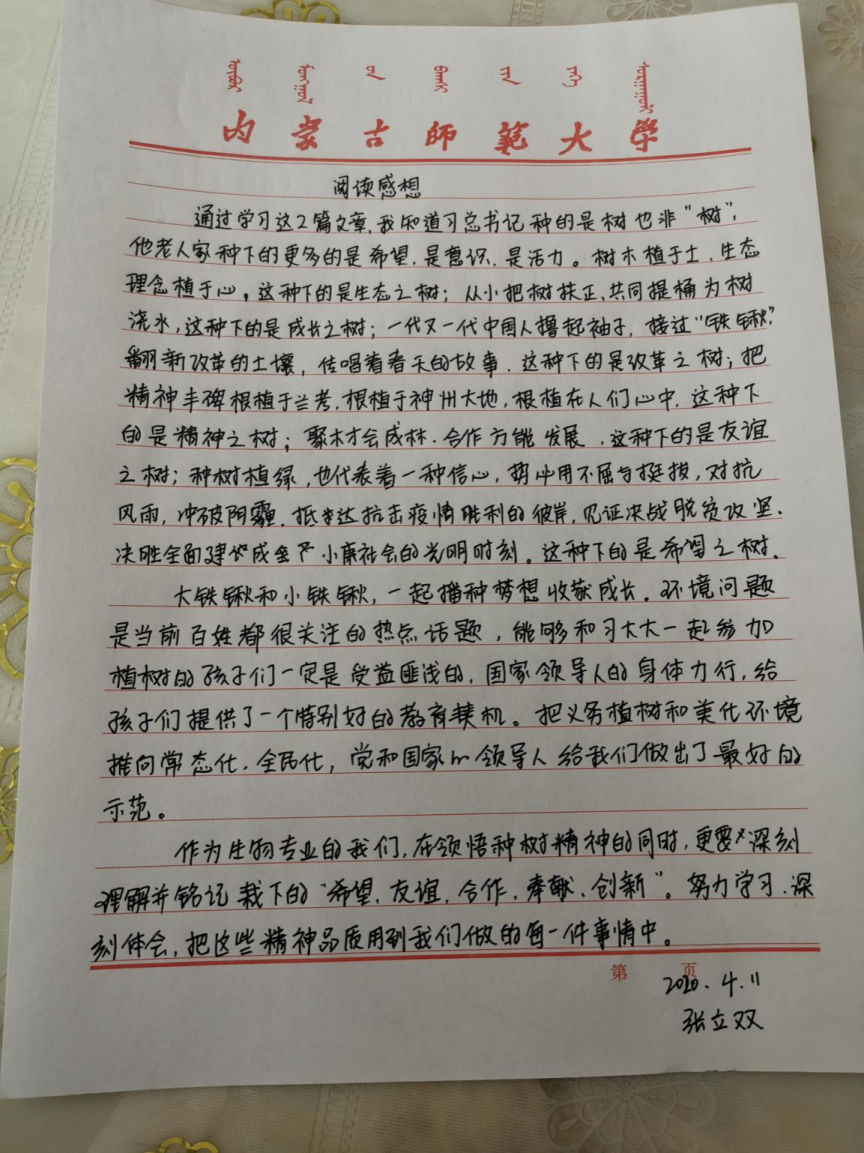 内蒙古师范大学
阅读感想
通过学习这2篇文章,我知道习总书记种的是树也非"树",
他老人家种下的更多的是希望、是意识、是活力。树木植于土、生态
理念植于心,这种下的是生态之树;从小把树扶正,共同提桶为树
浇水,这种下的是成长之树;一代又一代中国人撸起袖子,接过"铁锹",
翻新改革的土壤,传唱着春天的故事、这种下的是改革之树;把
精神丰碑根植于兰考,根植于神州大地,根植在人们心中,这种下
的是精神之树;聚木才会成林、合作方能发展,这种下的是友谊
之树;种树植绿,也代表着一种信心,势必用不屈与挺拔,对抗
风雨,冲破阴霾、抵达抗击疫情胜利的彼岸,见证决战脱贫攻坚、
决胜全面建成小康社会的光明时刻。这种下的是希望之树.
大铁锹和小铁锹,一起播种梦想收获成长。环境问题
是当前百姓都很关注的热点话题,能够和习大大一起参加
植树的孩子们一定是受益匪浅的,国家领导人的身体力行,给
孩子们提供了一个特别好的教育契机。把义务植树和美化环境
推向常态化、全民化,党和国家的领导人给我们做出了最好的
示范。
作为生物专业的我们,在领悟种树精神的同时,更要深刻
理解并铭记栽下的"希望、友谊、合作、奉献、创新"。努力学习、深
刻体会,把这些精神品质用到我们做的每一件事情中。
第 页
2020.4.11
张立双